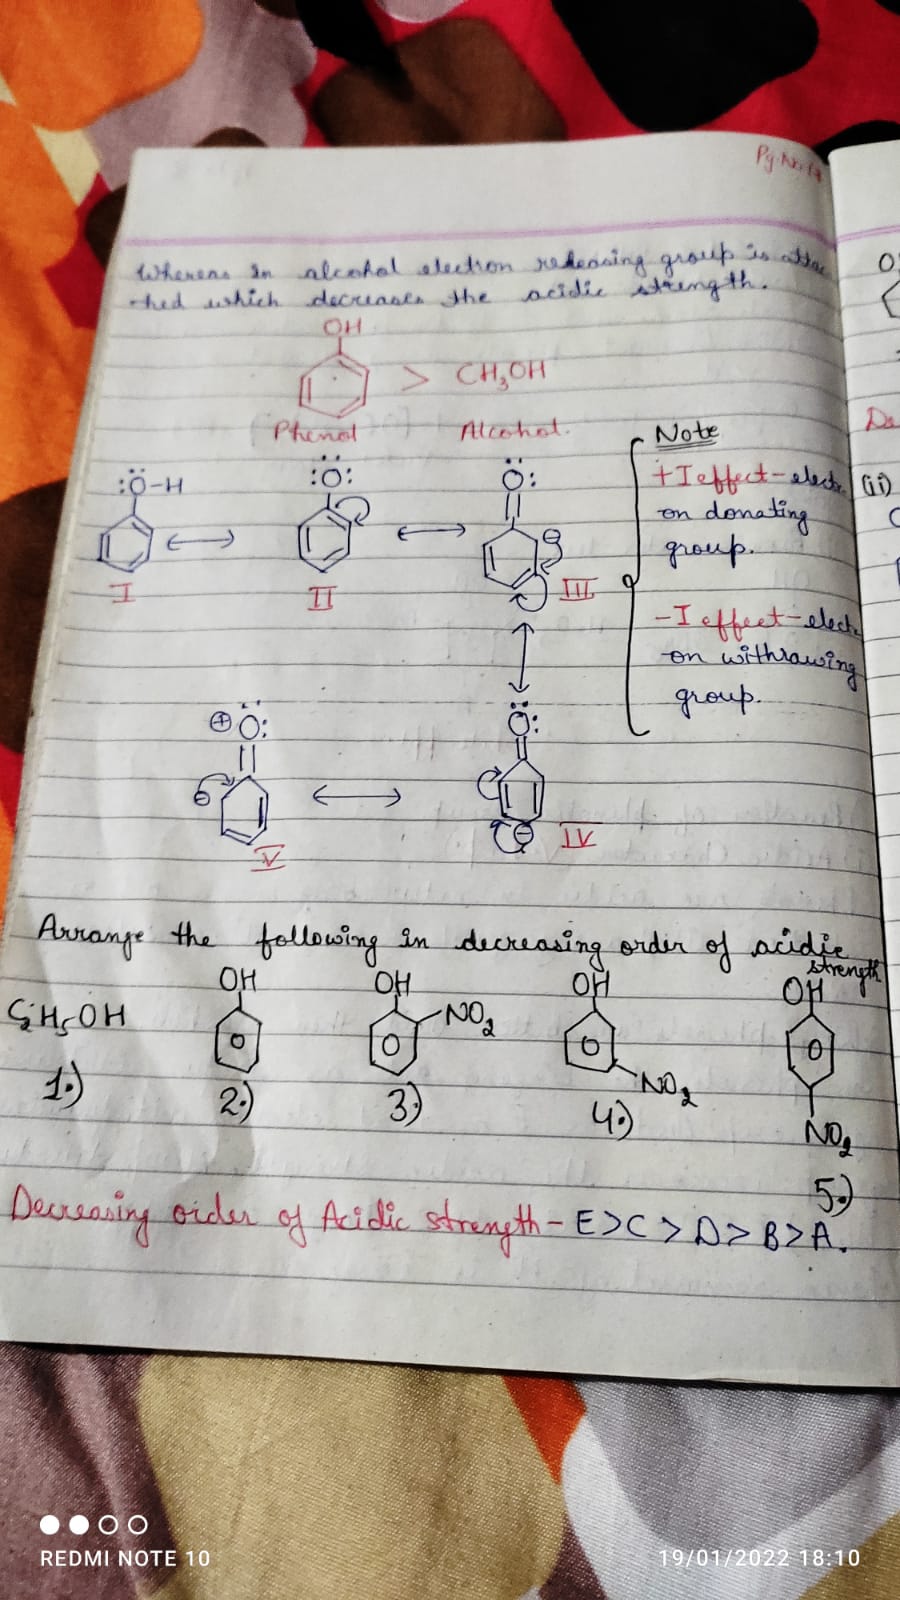 Pg. No.
Whereas in alcohol electron releasing group is attac
-hed which decreases the acidic strength.
OH
> CH3OH
Phenol Alcohol.
Note
+I effect - electr
on donating
group.
-I effect - electr
on withrawing
group.
:Ö-H
:Ö:
Ö:
I
II
III
⊕ Ö:
Ö:
V
IV
Arrange the following in decreasing order of acidic
strength
C2H5OH
OH
OH
NO2
OH
NO2
OH
NO2
1.)
2.)
3.)
4.)
5.)
Decreasing order of Acidic strength - E>C>D>B>A.
O
De
(ii)
REDMI NOTE 10
19/01/2022 18:10